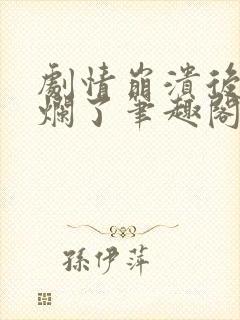 劇情崩潰後
爛了筆趣閣
孫伊萍